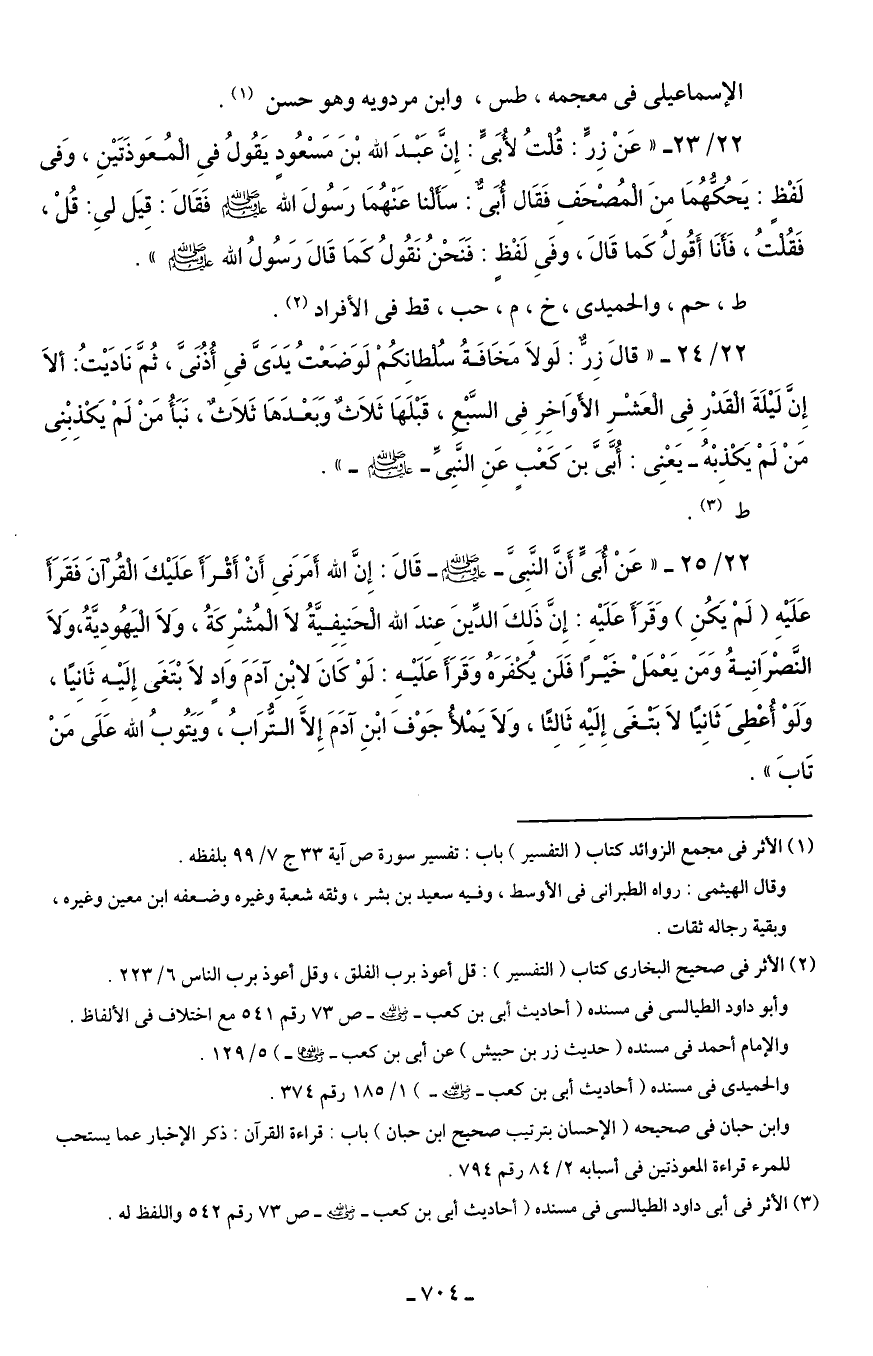 الإسماعيلى فى معجمه ، طس ، وابن مردويه وهو حسن (١) .
٢٣/٢٢ـ « عَنْ زِرٍّ : قُلْتُ لأُبَىٍّ : إِنَّ عَبْدَ الله بْنَ مَسْعُودٍ يَقُولُ فِى الْمُعَوذَتَيْنِ ، وَفى
لَفْظٍ : يَحُكُّهُمَا مِنَ الْمُصْحَفِ فَقَال أُبَىٌّ : سَأَلْنا عَنْهُمَا رَسُولَ الله ﷺ فَقَالَ : قِيَل لى: قُلْ ،
فَقُلْتُ ، فَأَنَا أَقُولُ كَما قَالَ ، وَفى لَفْظٍ : فَنَحْنُ نَقُولُ كَمَا قَالَ رَسُولُ الله ﷺ » .
ط ، حم ، والحميدى ، خ ، م ، حب ، قط فى الأفراد (٢) .
٢٤/٢٢ ـ « قالَ زِرٌّ : لَولاَ مَخَافَةُ سُلْطانِكُمْ لَوَضَعْتُ يَدَىَّ فى أُذُنَىَّ ، ثُمَّ نَادَيْتُ: ألاَ
إِنَّ لَيْلَةَ الْقَدْرِ فِى الْعَشْرِ الأَوَاخِرِ فِى السَّبْعِ ، قَبْلَهَا ثَلاَثٌ وَبَعْدَهَا ثَلاَثٌ ، نَبَأُ مَنْ لَمْ يَكْذِبْنِى
مَنْ لَمْ يَكْذِبْهُ ـ يَعْنِى : أُبَىَّ بنَ كَعْبٍ عَنِ النَّبِىِّ ـ ﷺ ـ » .
ط (٣) .
٢٥/٢٢ ـ « عَنْ أُبَىٍّ أَنَّ النَّبِىَّ ـ ﷺ ـ قَالَ : إِنَّ الله أَمَرَنِى أَنْ أَقْرَأَ عَلَيْكَ الْقُرْآنَ فَقَرَأَ
عَلَيْهِ ( لَمْ يَكُنِ ) وَقَرَأَ عَلَيْهِ : إِنَّ ذَلِكَ الدِّينَ عِندَ الله الْحَنِيفِيَّةُ لاَ الْمُشْرِكَةُ ، وَلاَ الْيَهُودِيَّةُ،وَلاَ
النَّصْرَانِيةُ وَمَن يَعْمَلْ خَيْرًا فَلَن يُكْفَرَهُ وَقَرَأَ عَلَيْهِ : لَوْ كَانَ لابْنِ آدَمَ وَادٍ لاَ بْتَغَى إِلَيْهِ ثَانِيًا ،
وَلَوْ أُعْطِىَ ثَانيًا لاَ بَتْغَى إِلَيْهِ ثَالِثًا ، وَلاَ يَمْلأُ جَوْفَ ابْنِ آدَمَ إِلاَّ التُّرَابُ ، وَيَتُوبُ الله عَلَى مَنْ
تَابَ » .
(١) الأثر فى مجمع الزوائد كتاب ( التفسير ) باب : تفسير سورة ص آية ٣٣ ج ٧/ ٩٩ بلفظه .
وقال الهيثمى : رواه الطبرانى فى الأوسط ، وفيه سعيد بن بشر ، وثقه شعبة وغيره وضعفه ابن معين وغيره ،
وبقية رجاله ثقات .
(٢) الأثر فى صحيح البخارى كتاب ( التفسير ) : قل أعوذ برب الفلق ، وقل أعوذ برب الناس ٦/ ٢٢٣ .
وأبو داود الطيالسى فى مسنده ( أحاديث أبى بن كعب ـ رضي الله عنه ـ ص ٧٣ رقم ٥٤١ مع اختلاف فى الألفاظ .
والإمام أحمد فى مسنده ( حديث زر بن حبيش ) عن أبى بن كعب ـ رضي الله عنهما ـ ) ٥/ ١٢٩ .
والحميدى فى مسنده ( أحاديث أبى بن كعب ـ رضي الله عنه ـ ) ١/ ١٨٥ رقم ٣٧٤ .
وابن حبان فى صحيحه ( الإحسان بترتيب صحيح ابن حبان ) باب : قراءة القرآن : ذكر الإخبار عما يستحب
للمرء قراءة المعوذتين فى أسبابه ٢/ ٨٤ رقم ٧٩٤ .
(٣) الأثر فى أبى داود الطيالسى فى مسنده ( أحاديث أبى بن كعب ـ رضي الله عنه ـ ص ٧٣ رقم ٥٤٢ واللفظ له .
ـ ٧٠٤ ـ